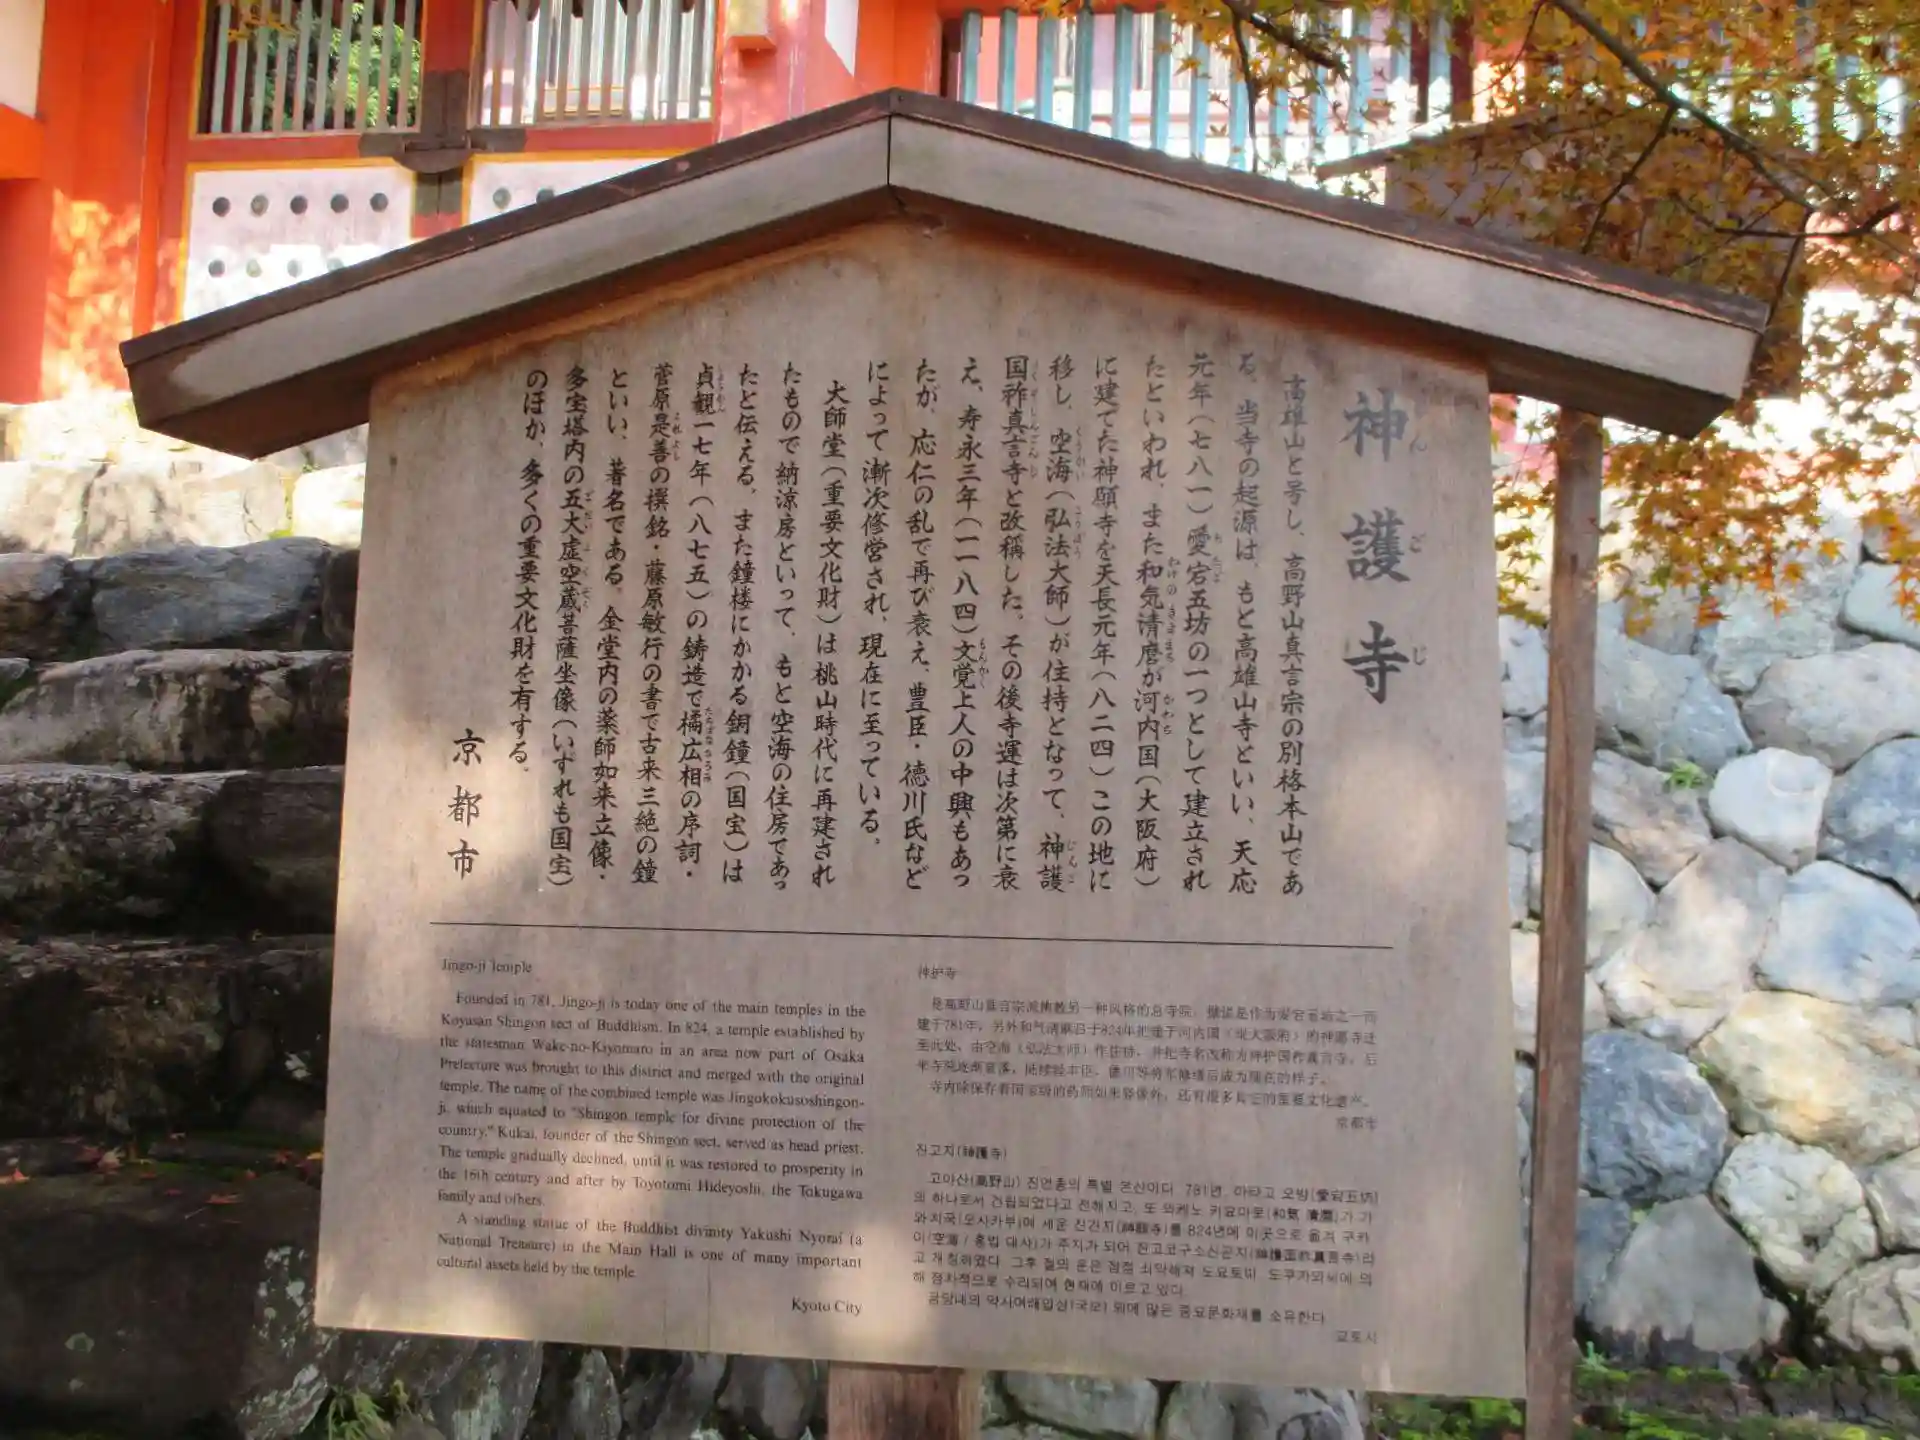 神護寺
高雄山と号し、高野山真言宗の別格本山であ
る。当寺の起源は、もと高雄山寺といい、天応
元年(七八一)愛宕五坊の一つとして建立され
たといわれ、また和気清麿が河内国(大阪府)
に建てた神願寺を天長元年(八二四)この地に
移し、空海(弘法大師)が住持となって、神護
国祚真言寺と改稱した。その後寺運は次第に衰
え、寿永三年(一一八四)文覚上人の中興もあっ
たが、応仁の乱で再び衰え、豊臣・徳川氏など
によって漸次修営され、現在に至っている。
大師堂(重要文化財)は桃山時代に再建され
たもので納涼房といって、もと空海の住房であっ
たと伝える。また鐘楼にかかる銅鐘(国宝)は
貞観一七年(八七五)の鋳造で橘広相の序詞・
菅原是善の撰銘・藤原敏行の書で古来三絶の鐘
といい、著名である。金堂内の薬師如来立像・
多宝塔内の五大虚空蔵菩薩坐像(いずれも国宝)
のほか、多くの重要文化財を有する。
京都市
Jingo-ji Temple
Founded in 781, Jingo-ji is today one of the main temples in the
Koyasan Shingon sect of Buddhism. In 824, a temple established by
the statesman Wake-no-Kiyomaro in an area now part of Osaka
Prefecture was brought to this district and merged with the original
temple. The name of the combined temple was Jingokokusoshingon-
ji, which equated to "Shingon temple for divine protection of the
country." Kukai, founder of the Shingon sect, served as head priest.
The temple gradually declined, until it was restored to prosperity in
the 16th century and after by Toyotomi Hideyoshi, the Tokugawa
family and others.
A standing statue of the Buddhist divinity Yakushi Nyorai (a
National Treasure) in the Main Hall is one of many important
cultural assets held by the temple.
Kyoto City
神护寺
是高野山真言宗派佛教另一种风格的总寺院。据说是作为爱宕五坊之一而
建于781年，另外和气清麻吕于824年把建于河内国（现大阪府）的神愿寺迁
至此处，由空海（弘法大师）作住持，并把寺名改称为神护国祚真言寺。后
来寺院逐渐衰落，陆续经丰臣、德川等将军修缮后成为现在的样子。
寺内除保存着国宝级的药师如来竖像外，还有很多其它的重要文化遗产。
京都市
진고지(神護寺)
고야산(高野山) 진언종의 특별 본산이다. 781년, 아타고 오방(愛宕五坊)
의 하나로서 건립되었다고 전해지고, 또 와케노 키요마로(和気 清麿)가 가
와치국(오사카부)에 세운 진간지(神願寺)를 824년에 이곳으로 옮겨 쿠카
이(空海 / 홍법 대사)가 주지가 되어 진고코구소신곤지(神護国祚真言寺)라
고 개칭하였다. 그후 절의 운은 점점 쇠약해져 도요토미, 도쿠가와씨에 의
해 점차적으로 수리되어 현재에 이르고 있다.
금당내의 약사여래입상(국보) 외에 많은 중요문화재를 소유한다.
교토시